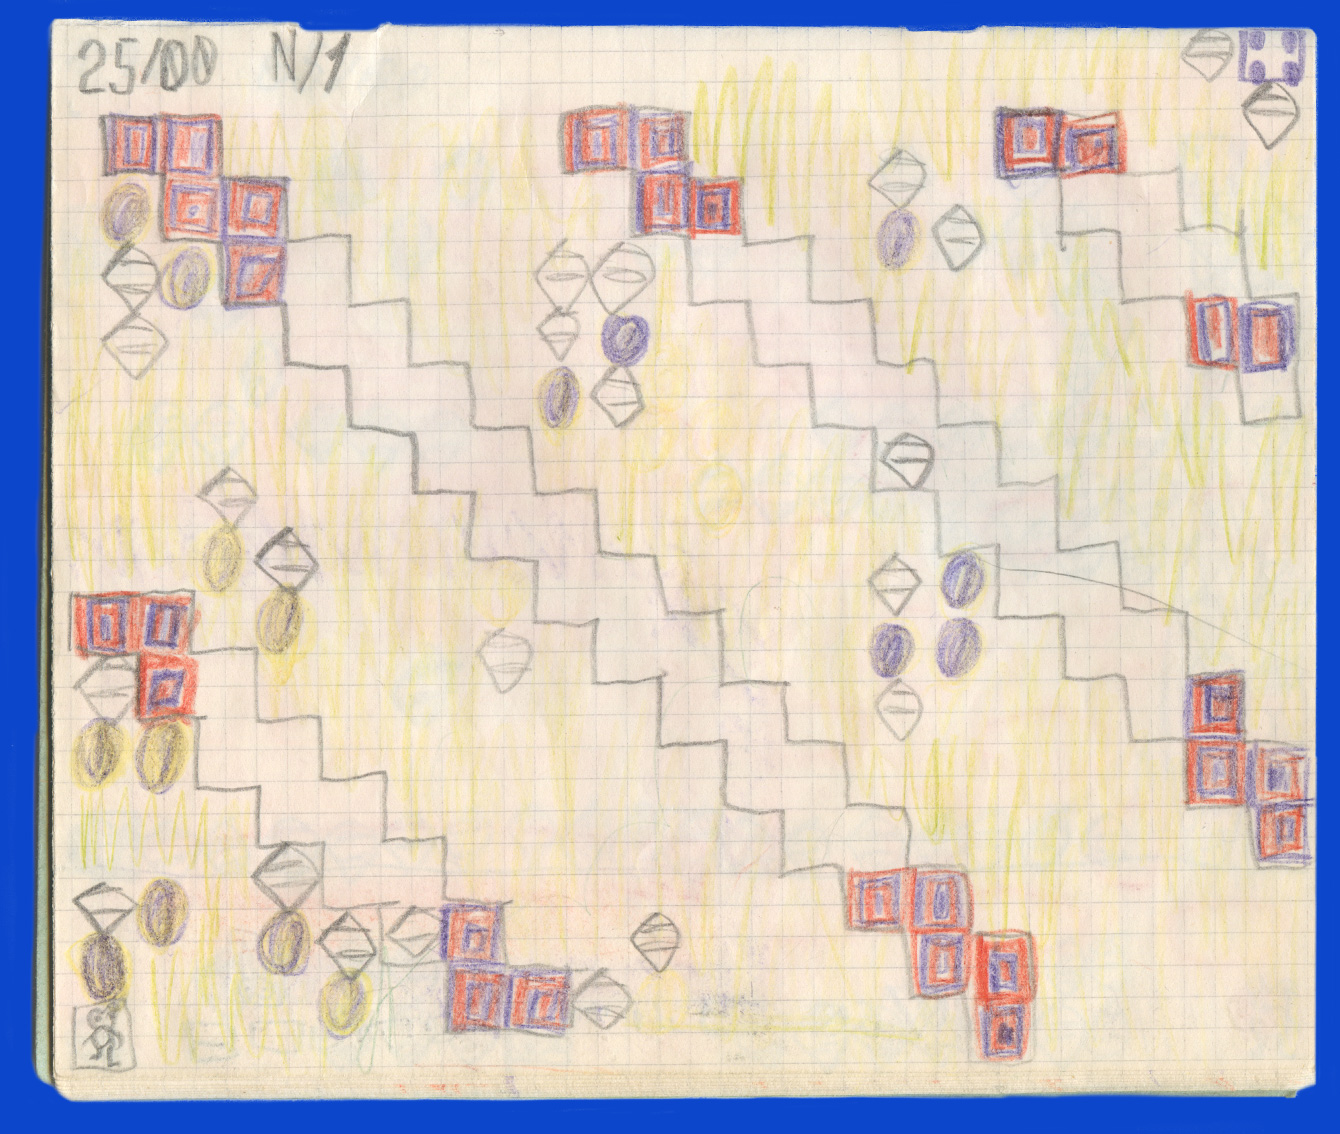 25/00 N/1